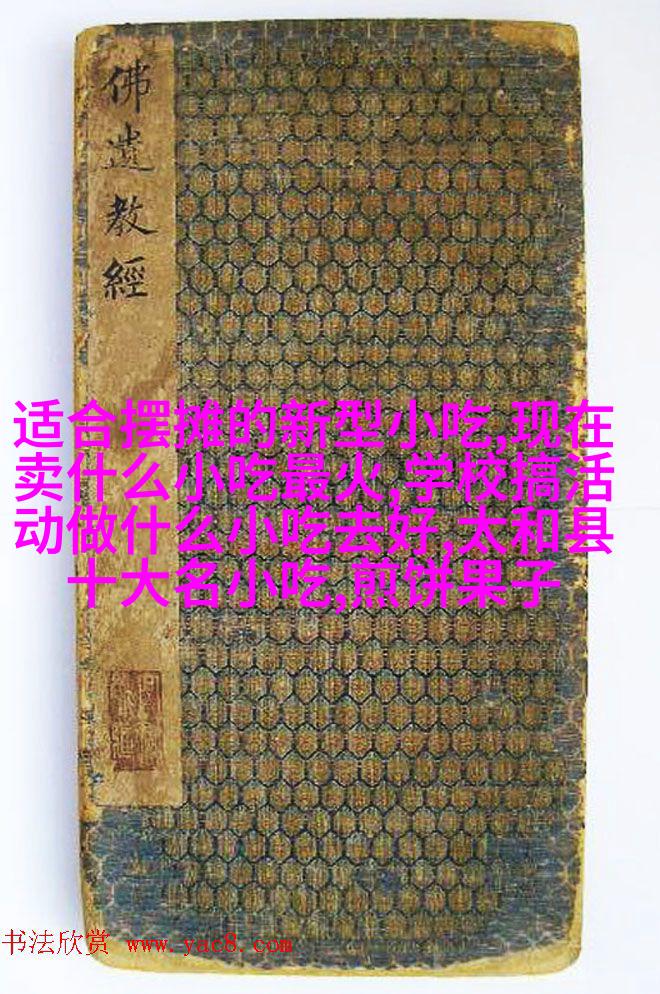 佛遺教經
适合摆摊的新型小吃,现在
卖什么小吃最火,学校搞活
动做什么小吃去好,太和县
十大名小吃,煎饼果子
书法欣赏 www.yac8.com